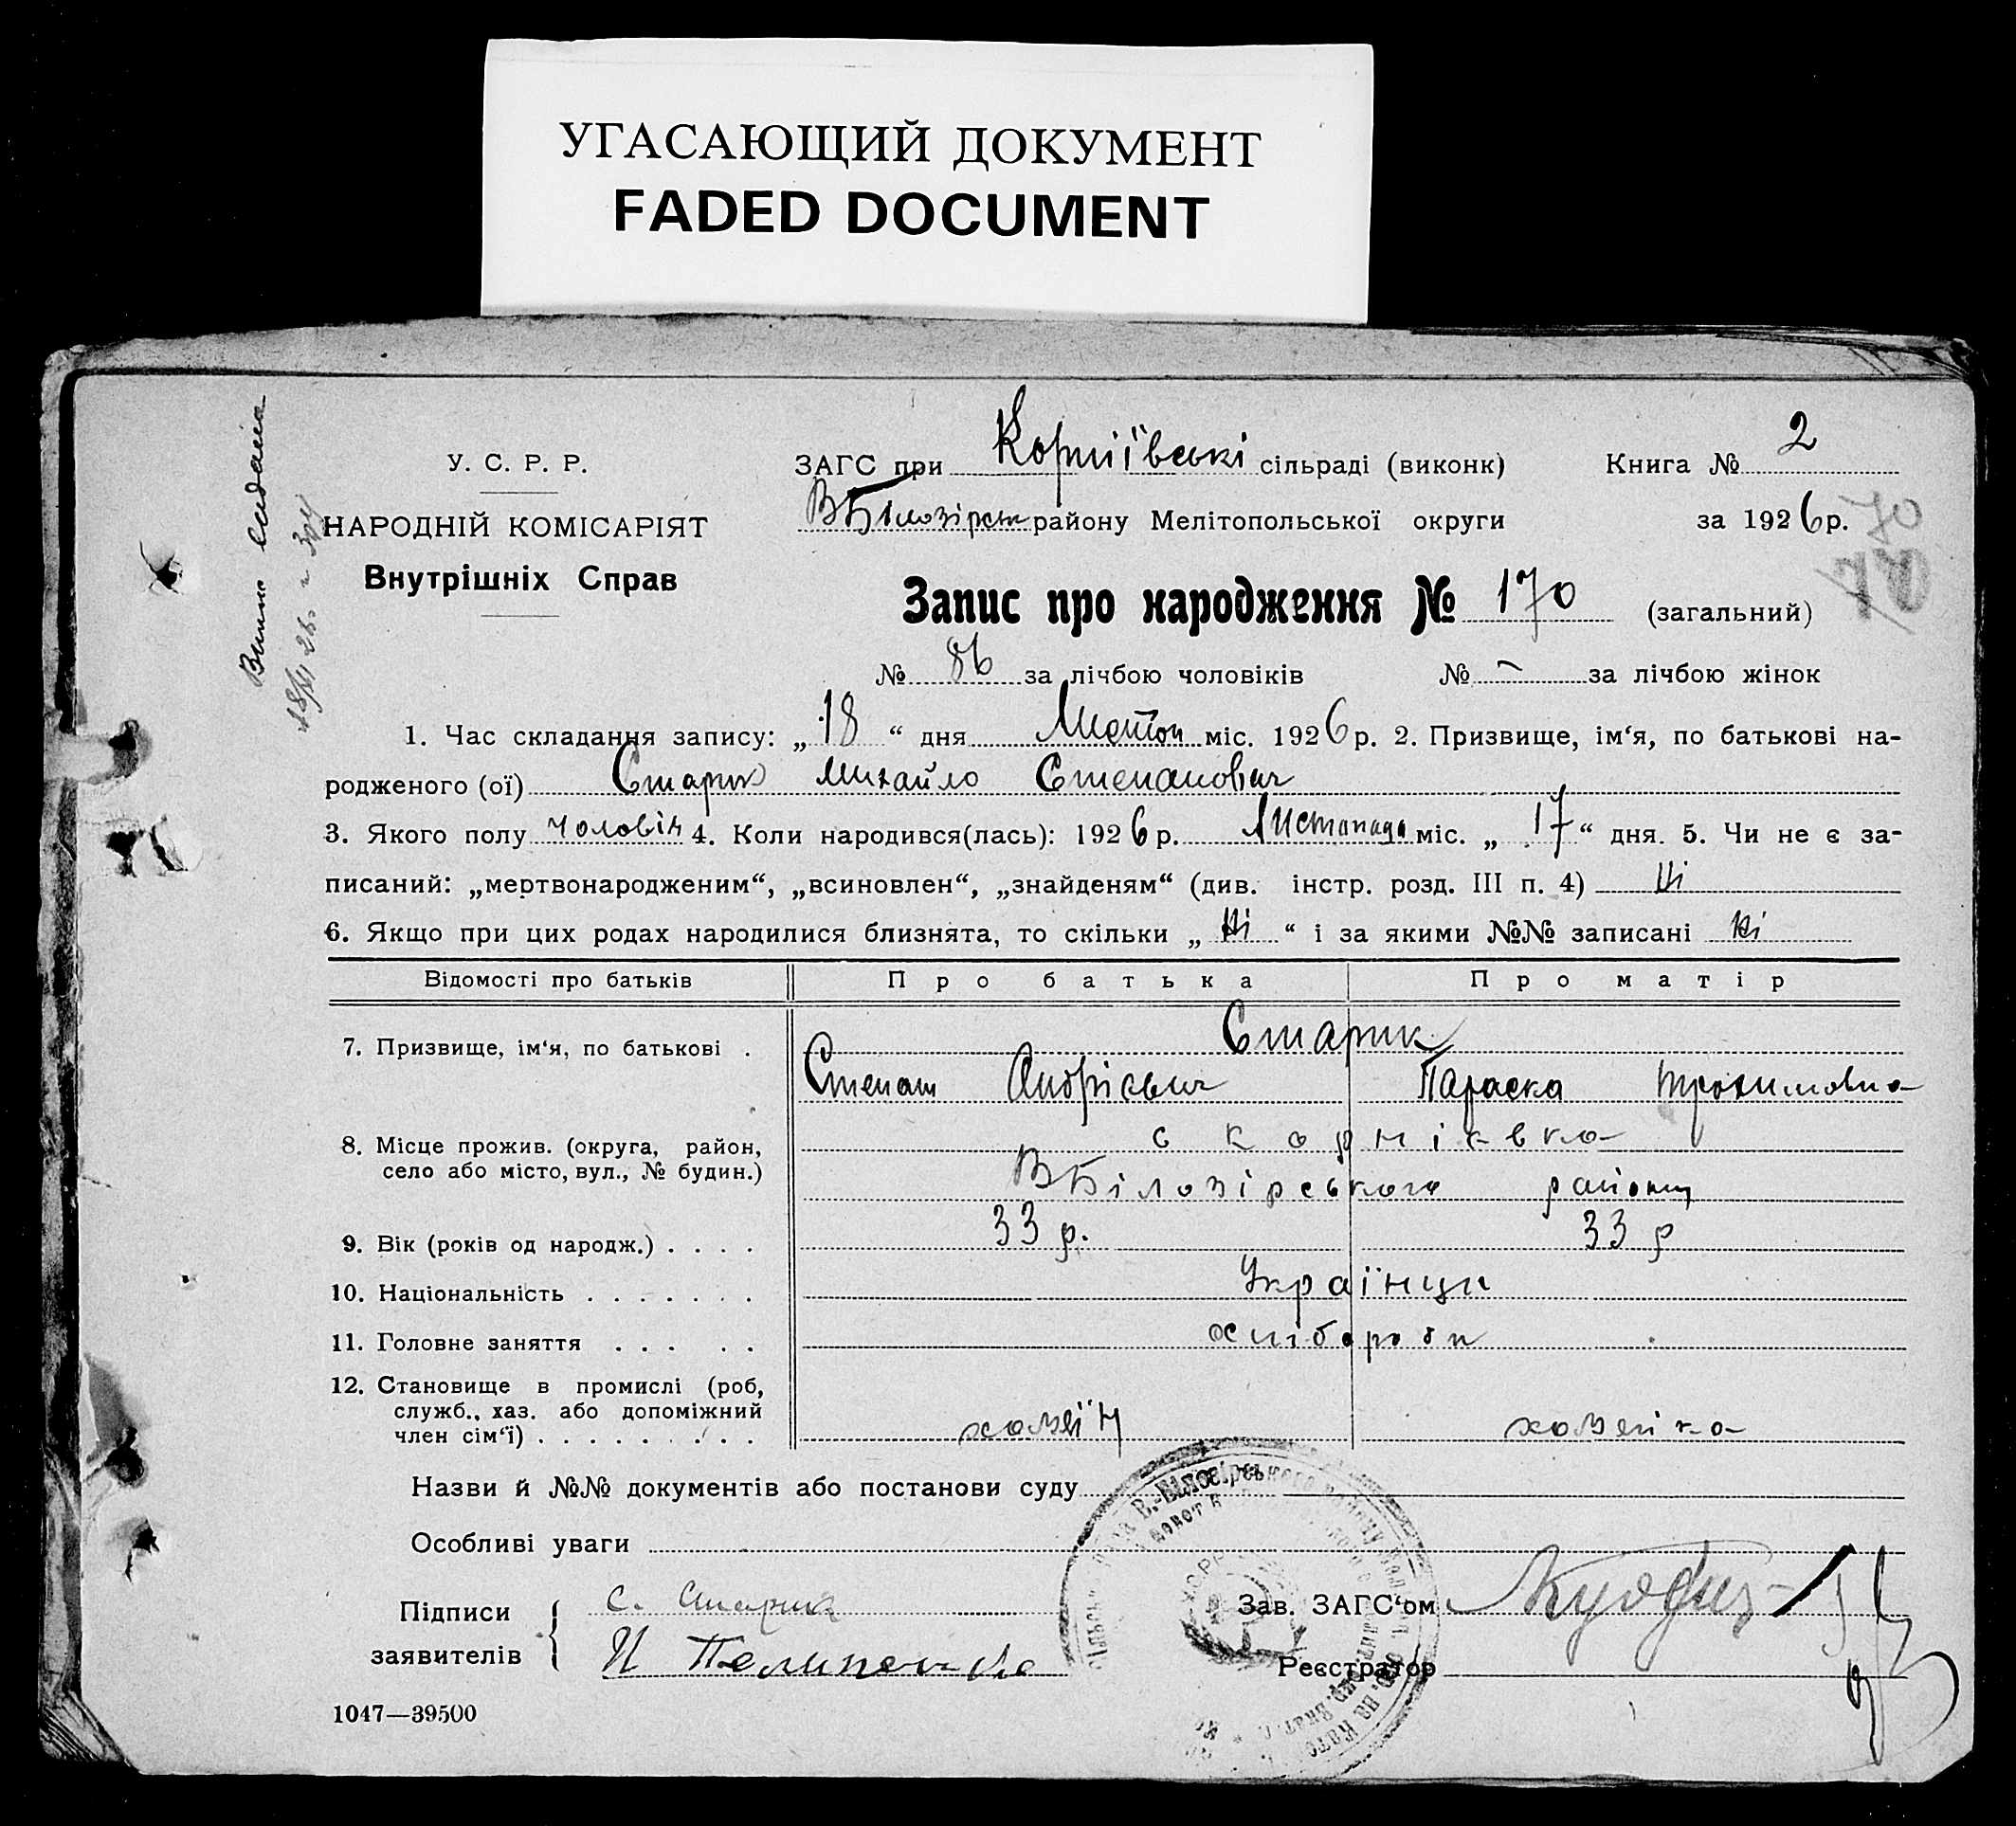 УГАСАЮЩИЙ ДОКУМЕНТ
FADED DOCUMENT
У. С. Р. Р.
НАРОДНІЙ КОМІСАРІЯТ
Внутрішніх Справ
ЗАГС при Корніївські сільраді (виконк)
ВБілозірськ району Мелітопольської округи
Книга № 2
за 1926 р.
70
170
Запис про народження № 170 (загальний)
№ 86 за лічбою чоловіків № – за лічбою жінок
1. Час складання запису: „18“ дня Листоп міс. 1926 р. 2. Призвище, ім‘я, по батькові на-
родженого (ої) Старик Михайло Степанович
3. Якого полу чоловік 4. Коли народився(лась): 1926 р. Листопада міс. „17“ дня. 5. Чи не є за-
писаний: „мертвонародженим“, „всиновлен“, „знайденям“ (див. інстр. розд. III п. 4) Ні
6. Якщо при цих родах народилися близнята, то скільки „Ні“ і за якими №№ записані Ні
Відомості про батьків Про батька Про матір
7. Призвище, ім‘я, по батькові . Старик
Степан Андрієвич Параска Трохимовна
8. Місце прожив. (округа, район,
село або місто, вул., № будин.)
с Корніівка
ВБілозірського району
9. Вік (років од народж.) . . . . 33 р. 33 р
10. Національність . . . . . . . Українци
11. Головне заняття . . . . . хліброби
12. Становище в промислі (роб,
служб., хаз. або допоміжний
член сім‘ї) . . . . . . . . . хозяїн хозяйка
Назви й №№ документів або постанови суду
Особливі уваги
Підписи
заявителів
С. Старик
Зав. ЗАГС‘ом
Реєстратор
1047—39500